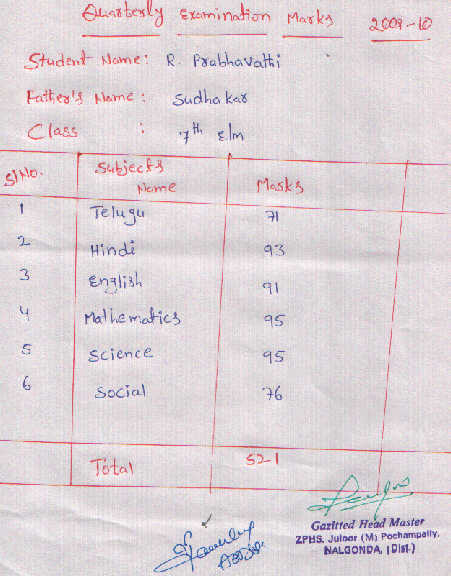 Quarterly Examination Marks 2009-10
Student Name: R. Prabhavathi
Father's Name: Sudhakar
Class : 7th E/m
Sl No. Subjects Name Marks
1 Telugu 71
2 Hindi 93
3 English 91
4 Mathematics 95
5 Science 95
6 Social 76
Total 521
Gazitted Head Master
ZPHS, Julnor (M) Pochampally,
NALGONDA, (Dist.)